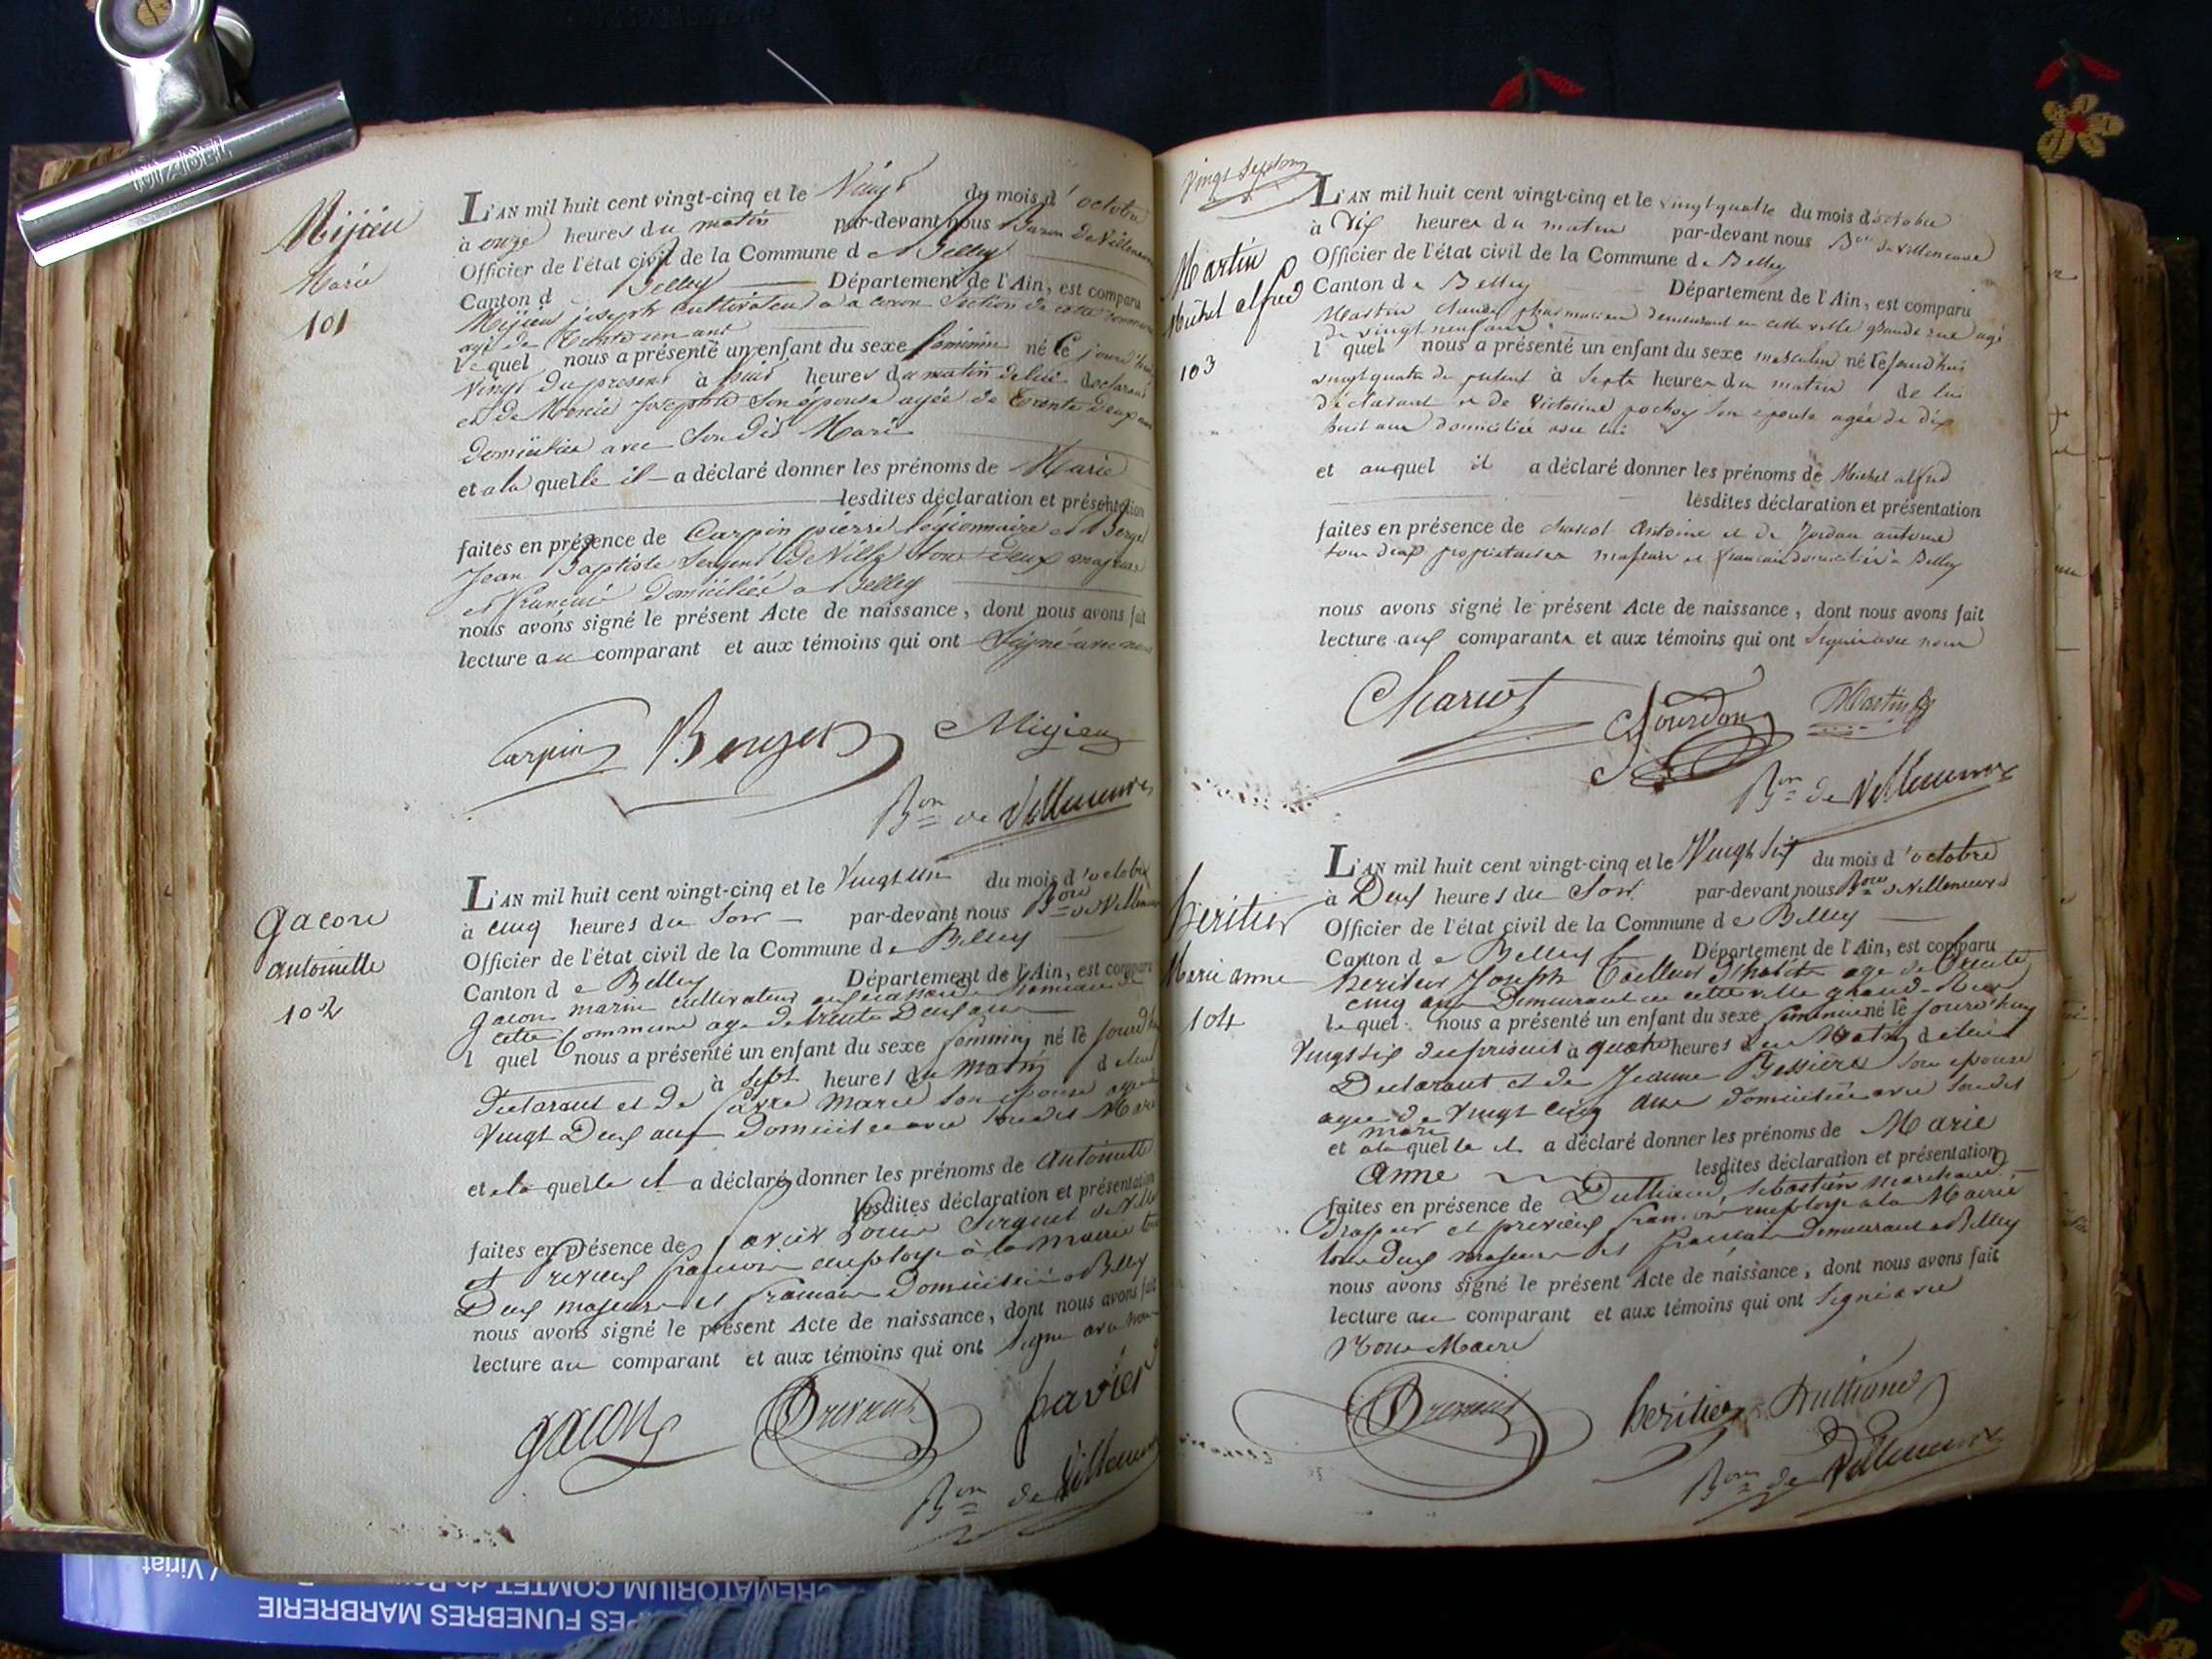 Mijieu
Marie
101
L'AN mil huit cent vingt-cinq et le Vingt du mois d'octobre
à onze heures du matin par-devant nous Baron de Villeneuve
Officier de l'état civil de la Commune de Belley
Canton d Belley Département de l'Ain, est comparu
Mijieu joseph cultivateur a coron Section de cette commune
agé de trente un ans
lequel nous a présenté un enfant du sexe feminin né le jourd'hui
vingt du present à huit heures du matin de lui declarant
et de Josephte son epouse agée de trente deux ans
domiciliée avec son dit Mari
et a la quelle il a déclaré donner les prénoms de Marie
lesdites déclaration et présentation
faites en présence de Carpin pierre légionnaire et Berger
Jean Baptiste Sergent de Ville tous deux majeurs
et français domiciliés a Belley
nous avons signé le présent Acte de naissance, dont nous avons fait
lecture au comparant et aux témoins qui ont signé avec nous
Carpin Berger Mijieu
Bon de Villeneuve
gacon
antoinette
102
L'AN mil huit cent vingt-cinq et le Vingt un du mois d'octobre
à cinq heures du soir par-devant nous Bon de Villeneuve
Officier de l'état civil de la Commune de Belley
Canton de Belley Département de l'Ain, est comparu
gacon marin cultivateur hameau de
cette Commune age de trente Deux ans
l quel nous a présenté un enfant du sexe feminin né le jourd'hui
à sept heures du matin de lui
declarant et de marie son epouse agee de
Vingt Deux ans domiciliee avec son dit Mari
et a la quelle il a déclaré donner les prénoms de antoinette
lesdites déclaration et présentation
faites en présence de Louis Sergent de Ville
et françois employe à la mairie tous
Deux majeurs et français domiciliés a Belley
nous avons signé le présent Acte de naissance, dont nous avons fait
lecture au comparant et aux témoins qui ont signe avec nous
gacon
Bon de Villeneuve
Martin
Michel alfred
103
L'AN mil huit cent vingt-cinq et le vingt quatre du mois d'octobre
à Dix heures du matin par-devant nous Bon de Villeneuve
Officier de l'état civil de la Commune de Belley
Canton de Belley Département de l'Ain, est comparu
Martin claude pharmacien demeurant en cette ville grande rue agé
de vingt neuf ans
l quel nous a présenté un enfant du sexe masculin né le jourd'hui
vingt quatre du présent à Sept heures du matin de lui
déclarant et de Victoire pochoy son epouse agée de dix
huit ans domiciliée avec lui
et auquel il a déclaré donner les prénoms de Michel alfred
lesdites déclaration et présentation
faites en présence de Antoine et de Jordan antoine
tous deux propriétaires majeurs et français domiciliés à Belley
nous avons signé le présent Acte de naissance, dont nous avons fait
lecture aux comparants et aux témoins qui ont signé avec nous
Jourdan Martin
Bon de Villeneuve
heritier
Marie anne
104
L'AN mil huit cent vingt-cinq et le Vingt six du mois d'octobre
à Deux heures du Soir par-devant nous Bon de Villeneuve
Officier de l'état civil de la Commune de Belley
Canton de Belley Département de l'Ain, est comparu
heritier Joseph Tailleur d'habits age de trente
cinq ans Demeurant en cette ville grand-Rue
lequel nous a présenté un enfant du sexe feminin né le jourd'huy
Vingt six du présent à quatre heures du Matin de lui
Declarant et de Jeanne Bessiere son epouse
agee de Vingt cinq ans domiciliée avec son dit
mari
et a la quelle il a déclaré donner les prénoms de Marie
anne lesdites déclaration et présentation
faites en présence de Dulliand, sebastien marchand
Drapier et françois employe a la Mairie
tous deux majeurs et français Demeurant a Belley
nous avons signé le présent Acte de naissance, dont nous avons fait
lecture au comparant et aux témoins qui ont signé avec
Nous Maire
heritier Dulliand
Bon de Villeneuve
PES FUNEBRES MARBRERIE
CREMATORIUM COMTET
/ Viriat